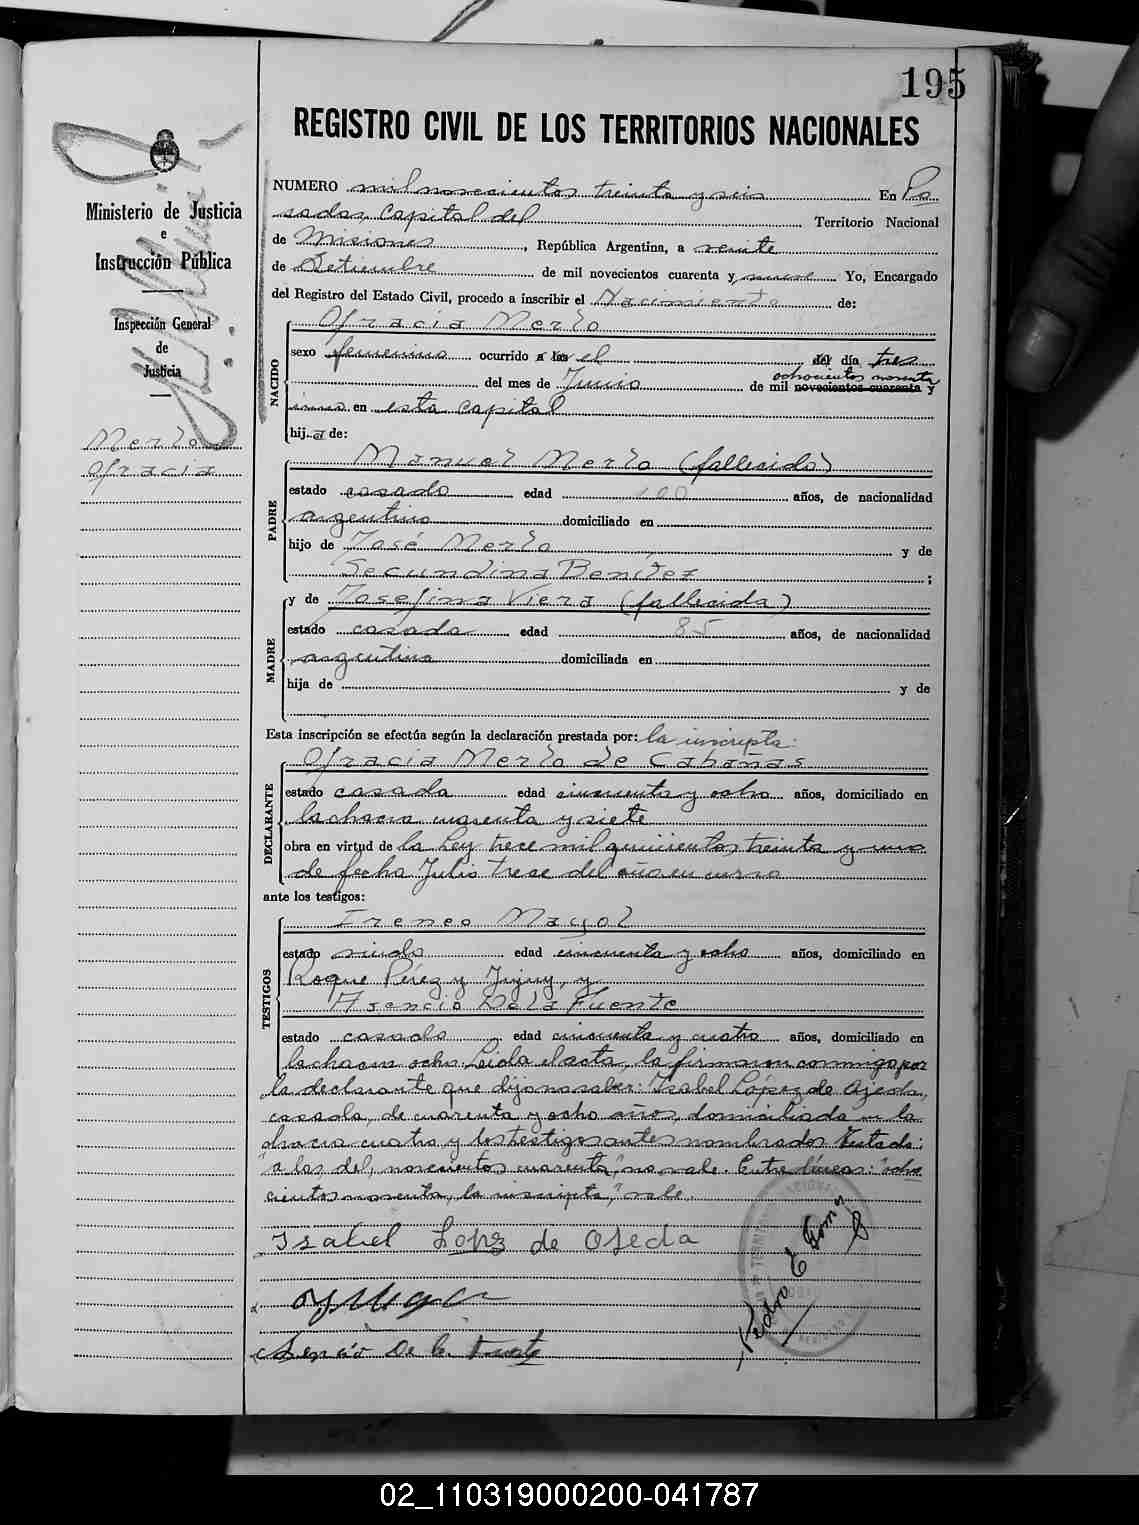 195
REGISTRO CIVIL DE LOS TERRITORIOS NACIONALES
Ministerio de Justicia
e
Instrucción Pública
Inspección General
de
Justicia
Merlo
Ofracia
NUMERO mil novecientos treinta y seis En Po
sadas Capital del Territorio Nacional
de Misiones, República Argentina, a veinte
de Setiembre de mil novecientos cuarenta y nueve Yo, Encargado
del Registro del Estado Civil, procedo a inscribir el Nacimiento de:
NACIDO
Ofracia Merlo
sexo femenino ocurrido a las el del día tres
ochocientos noventa
del mes de Junio de mil novecientos cuarenta y
uno en esta capital
hija de:
PADRE
Manuel Merlo (fallecido)
estado casado edad 100 años, de nacionalidad
argentino domiciliado en
hijo de José Merlo y de
Secundina Benítez;
MADRE
y de Josefina Viera (fallecida)
estado casada edad 85 años, de nacionalidad
argentina domiciliada en
hija de y de
Esta inscripción se efectúa según la declaración prestada por: la inscripta.
DECLARANTE
Ofracia Merlo de Cabañas
estado casada edad cincuenta y ocho años, domiciliado en
la chacra cuarenta y siete
obra en virtud de la Ley trece mil quinientos treinta y uno
de fecha Julio trece del año en curso
ante los testigos:
TESTIGOS
Ireneo Mayol
estado viudo edad cincuenta y ocho años, domiciliado en
Roque Pérez y Jujuy, y
Asencio De la Fuente
estado casado edad cincuenta y cuatro años, domiciliado en
la chacra ocho. Leida el acta, la firmaron conmigo, por
la declarante que dijo no saber: Isabel López de Ojeda,
casada, de cuarenta y ocho años, domiciliada en la
chacra cuatro y los testigos antes nombrados. Testado:
"a las, del, novecientos cuarenta," no vale. Entre líneas: "ocho
cientos noventa, la inscripta," vale.
Isabel Lopez de Ojeda
Asencio De la Fuente
Pedro E Gomez
02_110319000200-041787